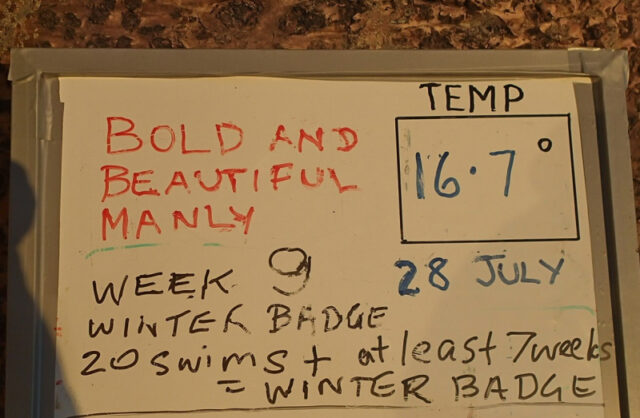 TEMP
BOLD AND
BEAUTIFUL
MANLY
16.7°
28 JULY
WEEK 9
WINTER BADGE
20 swims + at least 7 weeks
= WINTER BADGE